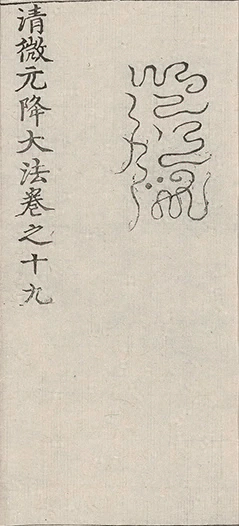 清微元降大法卷之十九